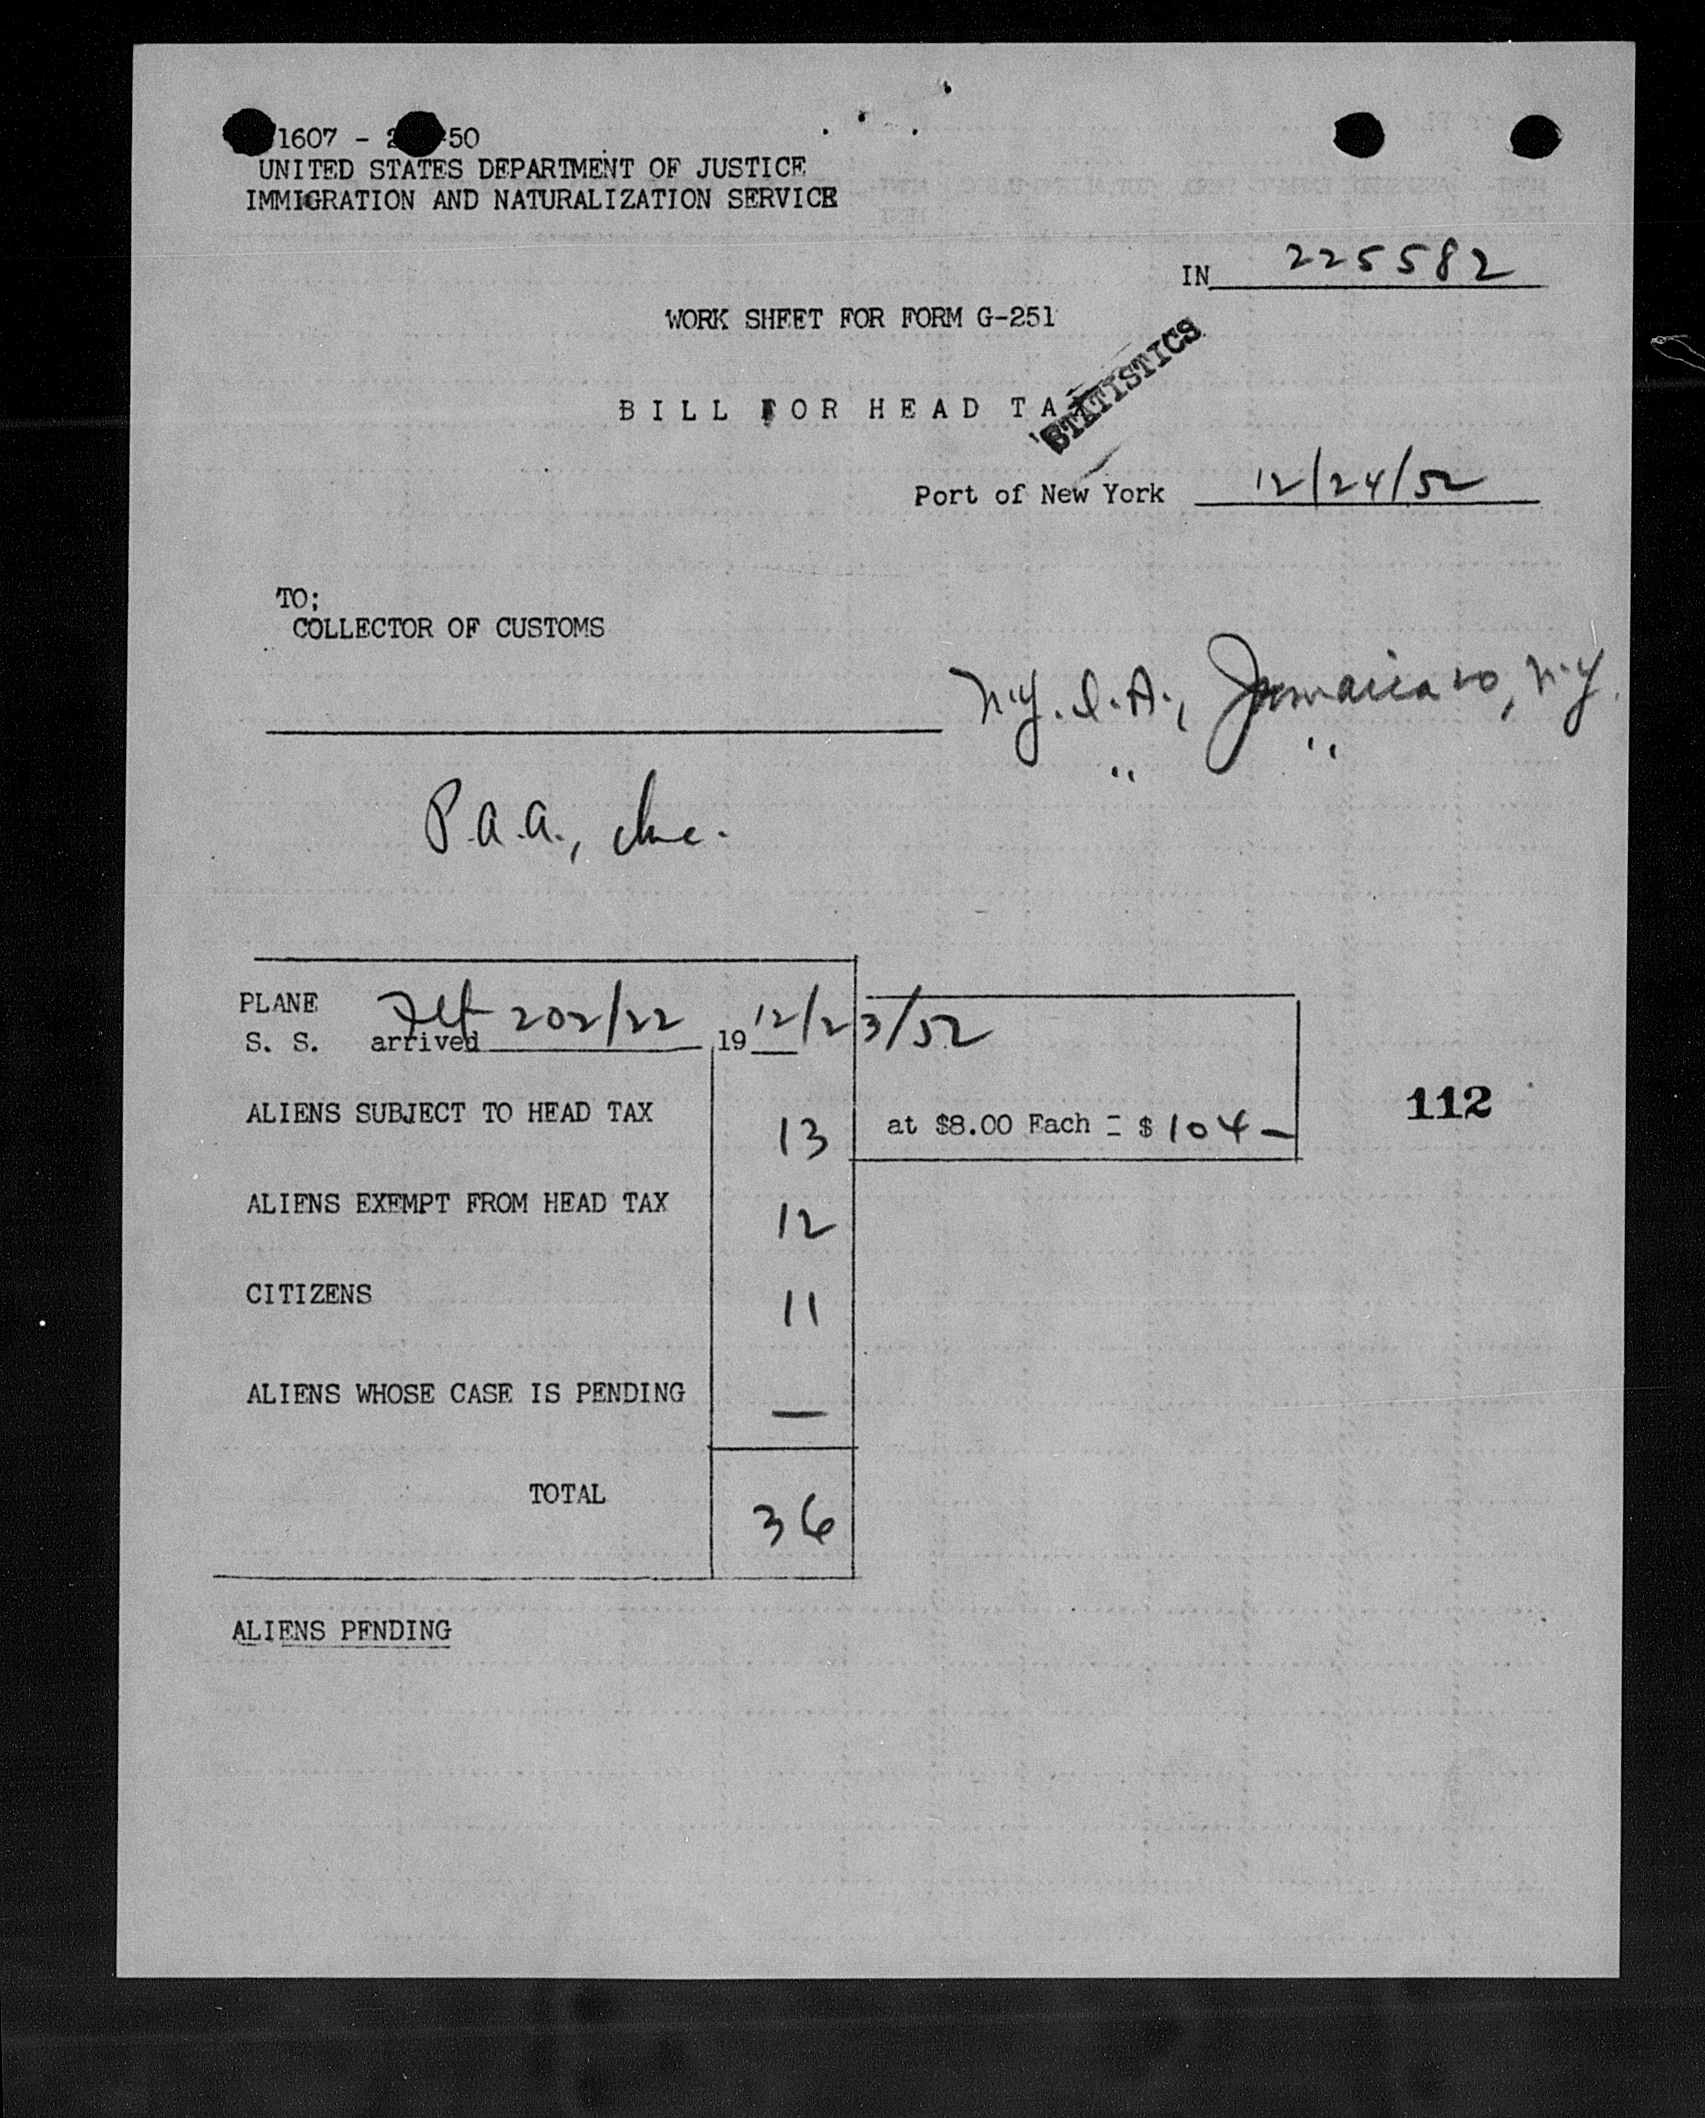 1607 - 2 50
UNITED STATES DEPARTMENT OF JUSTICE
IMMIGRATION AND NATURALIZATION SERVICE
IN 225582
WORK SHEET FOR FORM G-251
STATISTICS
BILL FOR HEAD TAX
Port of New York 12/24/52
TO;
COLLECTOR OF CUSTOMS
N.Y.I.A., Jamaica 20, N.Y.
" "
P.A.A., Inc.
PLANE Flt 202/22 12/23/52
S. S. arrived 19
ALIENS SUBJECT TO HEAD TAX 13 at $8.00 Each = $104 — 112
ALIENS EXEMPT FROM HEAD TAX 12
CITIZENS 11
ALIENS WHOSE CASE IS PENDING —
TOTAL 36
ALIENS PENDING